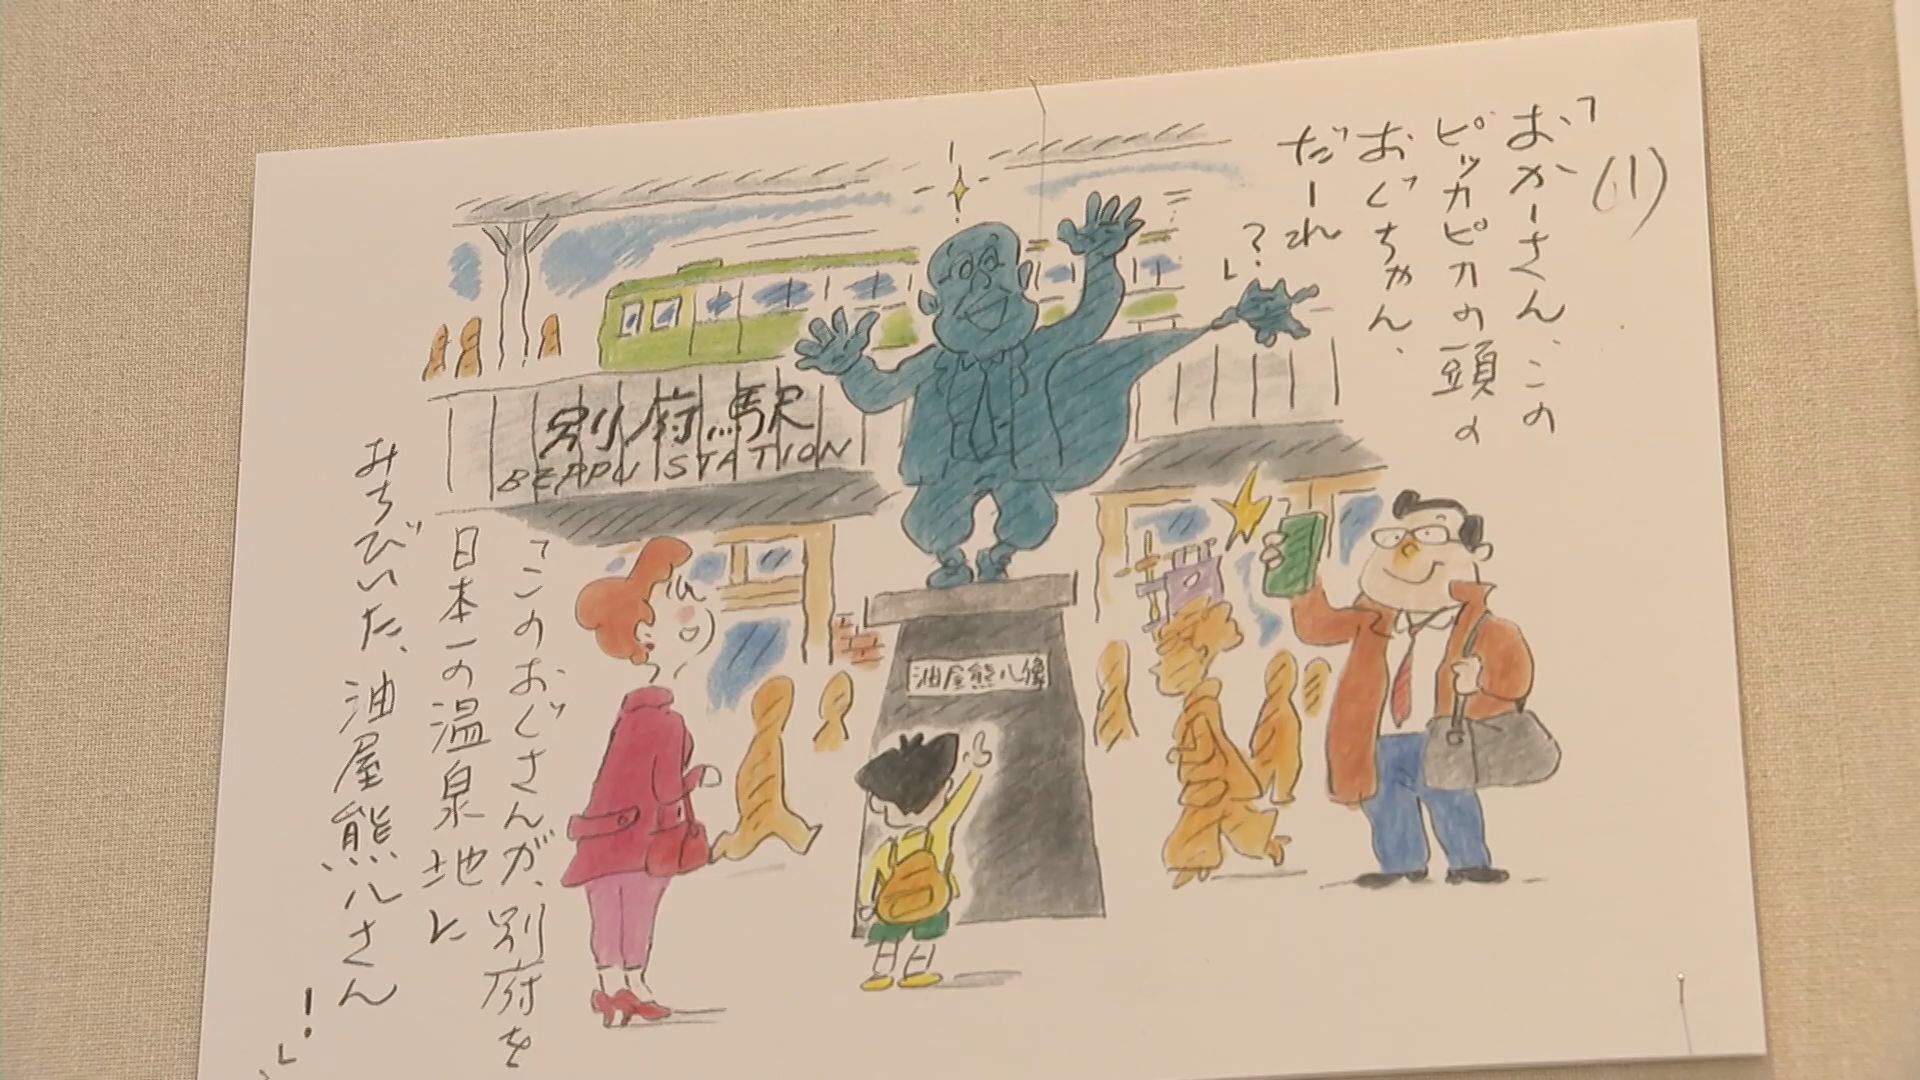 (1)
「おかーさん、この
ピッカピカの頭の
おじちゃん、
だーれ?」
別府駅
BEPPU STATION
油屋熊八像
「このおじさんが、別府を
日本一の温泉地に
みちびいた、油屋熊八さん!」